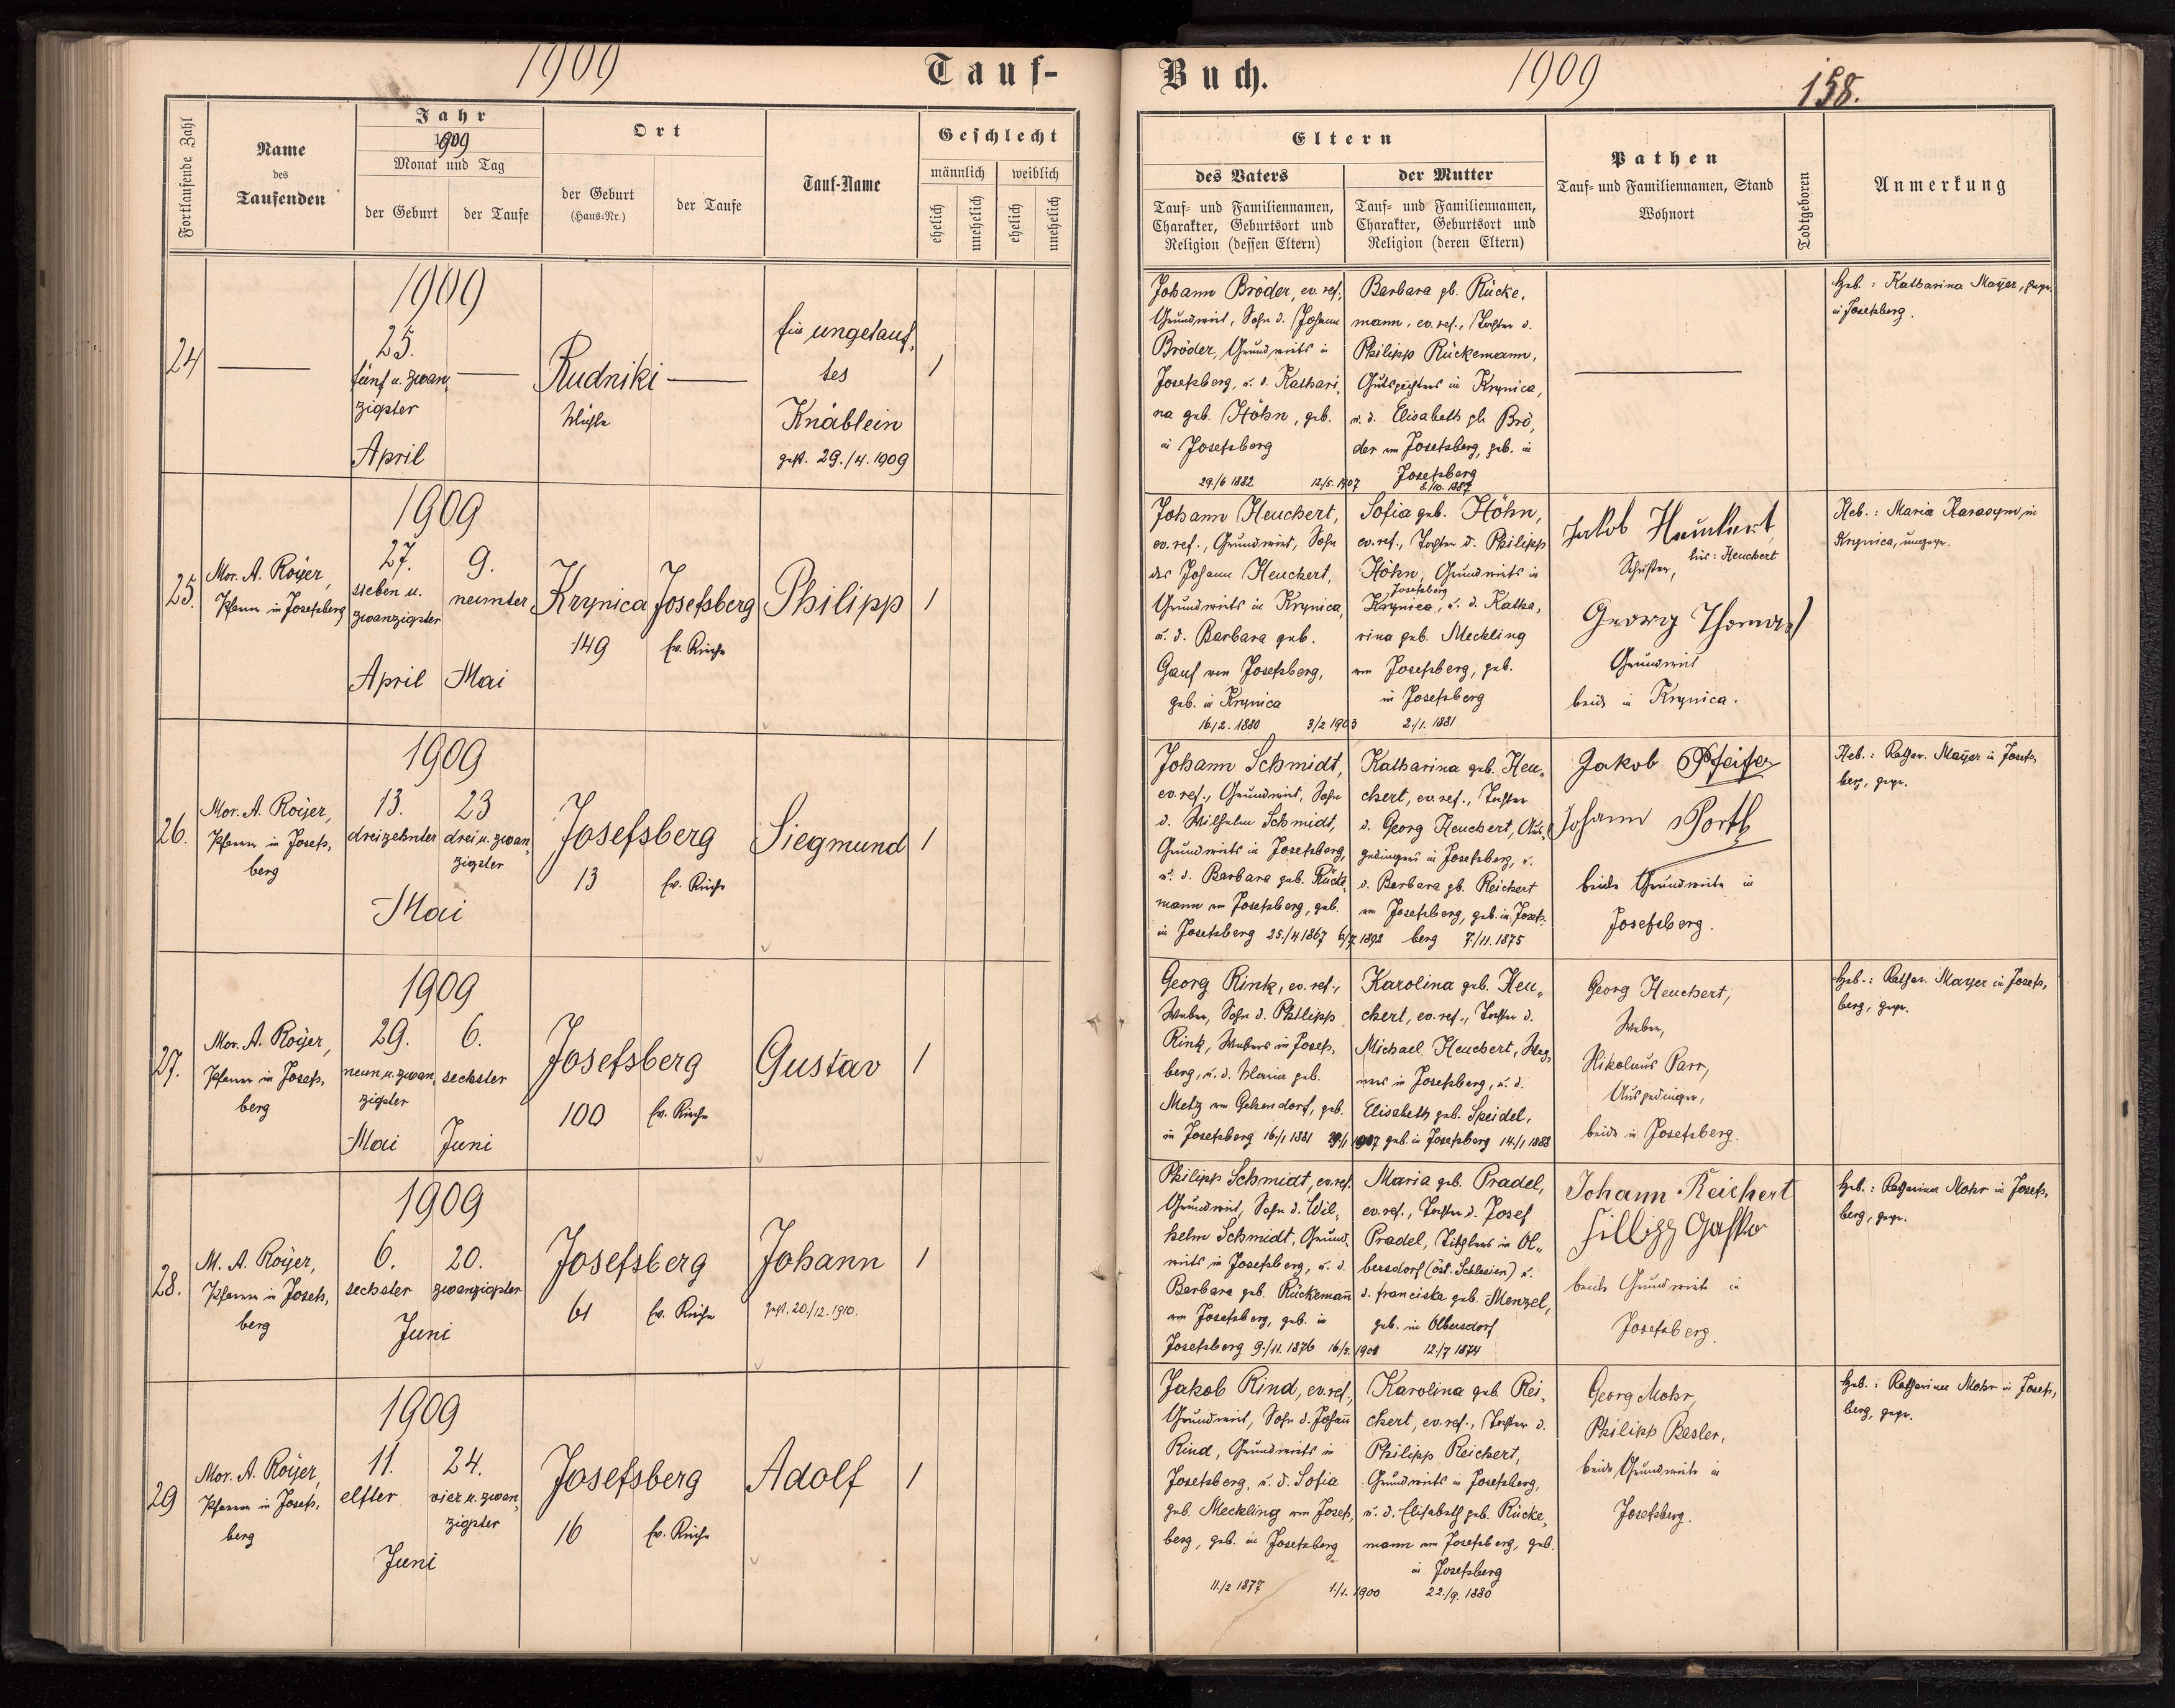 1909
Tauf-
Buch.
1909
158.
Fortlaufende Zahl
Name
des
Taufenden
Jahr
1909
Monat und Tag
der Geburt
der Taufe
Ort
der Geburt
(Haus-Nr.)
der Taufe
Tauf-Name
Geschlecht
männlich
weiblich
ehelich
unehelich
ehelich
unehelich
Eltern
des Vaters
Tauf- und Familiennamen,
Charakter, Geburtsort und
Religion (dessen Eltern)
der Mutter
Tauf- und Familiennamen,
Charakter, Geburtsort und
Religion (deren Eltern)
Pathen
Tauf- und Familiennamen, Stand
Wohnort
Todtgeboren
Anmerkung
24
1909
25.
fünf u. zwan-
zigster
April
Rudniki
Mühle
Ein ungetauf-
tes
Knäblein
gest. 29./4. 1909
1
Johann Bröder, ev. ref.,
Grundwirt, Sohn d. Johann
Bröder, Grundwirts in
Josefsberg, u. d. Kathari-
na geb. Höhn, geb.
in Josefsberg
29./6 1882
12/5. 1907
Barbara gb. Rücke-
mann, ev. ref., Tochter d.
Philipp Rückemann,
Gutspächters in Krynica,
u. d. Elisabeth gb. Brö-
der von Josefsberg, geb. in
Josefsberg
8./10. 1887
Heb.: Katharina Mayer, gepr.
in Josefsberg.
25.
Mor. A. Royer,
Pfarrer in Josefsberg
1909
27.
sieben u.
zwanzigster
April
9.
neunter
Mai
Krynica
149
Josefsberg
Ev. Kirche
Philipp
1
Johann Heuchert,
ev. ref., Grundwirt, Sohn
des Johann Heuchert,
Grundwirts in Krynica,
u. d. Barbara geb.
Gauf von Josefsberg,
geb. in Krynica
16./2. 1880
3/2 1903
Sofia geb. Höhn,
ev. ref., Tochter d. Philipp
Höhn, Grundwirts in
Josefsberg
Krynica, u. d. Katha-
rina geb. Meckling
von Josefsberg, geb.
in Josefsberg
2./1. 1881
Jakob
Schuster,
Heuchert
Georg Thomas
Grundwirt
beide in Krynica.
Heb.: Maria Harasym in
Krynica, ungepr.
26.
Mor. A. Royer,
Pfarrer in Josefs-
berg
1909
13.
dreizehnter
23
drei u. zwan-
zigster
Mai
Josefsberg
13
Ev. Kirche
Siegmund
1
Johann Schmidt,
ev. ref., Grundwirt, Sohn
d. Wilhelm Schmidt,
Grundwirts in Josefsberg,
u. d. Barbara geb. Rücke-
mann von Josefsberg, geb.
in Josefsberg 25./4 1867
6/7. 1892
Katharina geb. Heu-
chert, ev. ref., Tochter
d. Georg Heuchert, Aus-
gedingers in Josefsberg, u.
d. Barbara gb. Reichert
von Josefsberg, geb. in Josefs-
berg 7./11. 1875
Jakob Pfeifer
Johann Porth
beide Grundwirte in
Josefsberg.
Heb.: Kathar. Mayer in Josefs-
berg, gepr.
27.
Mor. A. Royer,
Pfarrer in Josefs-
berg
1909
29.
neun u. zwan-
zigster
Mai
6.
sechster
Juni
Josefsberg
100
Ev. Kirche
Gustav
1
Georg Rink, ev. ref.,
Weber, Sohn d. Philipp
Rink, Webers in Josefs-
berg, u. d. Maria geb.
Metz von Gelsendorf, geb.
in Josefsberg 16./1 1881
1907
Karolina geb. Heu-
chert, ev. ref., Tochter d.
Michael Heuchert, Wag-
ners in Josefsberg, u. d.
Elisabeth geb. Speidel,
geb. in Josefsberg 14./1 1888
Georg Heuchert,
Weber,
Nikolaus Parr,
Ausgedinger,
beide in Josefsberg.
Heb.: Kathar. Mayer in Josefs-
berg, gepr.
28.
M. A. Royer,
Pfarrer in Josefs-
berg
1909
6.
sechster
20.
zwanzigster
Juni
Josefsberg
61
Ev. Kirche
Johann
gest. 20./12. 1910.
1
Philipp Schmidt, ev. ref.
Grundwirt, Sohn d. Wil-
helm Schmidt, Grund-
wirts in Josefsberg, u. d.
Barbara geb. Rückemann
von Josefsberg, geb. in
Josefsberg 9./11. 1876
Maria geb. Pradel,
ev. ref., Tochter d. Josef
Pradel, Tischlers in Ol-
bersdorf (öst. Schlesien) u.
d. Franciska geb. Menzel,
geb. in Olbersdorf
12./7 1874
Johann Reichert
beide Grundwirte in
Josefsberg.
Heb.: Katharina Mohr in Josefs-
berg, gepr.
29
Mor. A. Royer,
Pfarrer in Josefs-
berg
1909
11.
elfter
24.
vier u. zwan-
zigster
Juni
Josefsberg
16
Ev. Kirche
Adolf
1
Jakob Rind, ev. ref.,
Grundwirt, Sohn d. Johann
Rind, Grundwirts in
Josefsberg, u. d. Sofia
geb. Meckling von Josefs-
berg, geb. in Josefsberg
11./2 1877
1./1. 1900
Karolina geb. Rei-
chert, ev. ref., Tochter d.
Philipp Reichert,
Grundwirts in Josefsberg,
u. d. Elisabeth geb. Rücke-
mann von Josefsberg, geb.
in Josefsberg
22./9. 1880
Georg Mohr,
Philipp Besler,
beide Grundwirte in
Josefsberg.
Heb.: Katharina Mohr in Josefs-
berg, gepr.